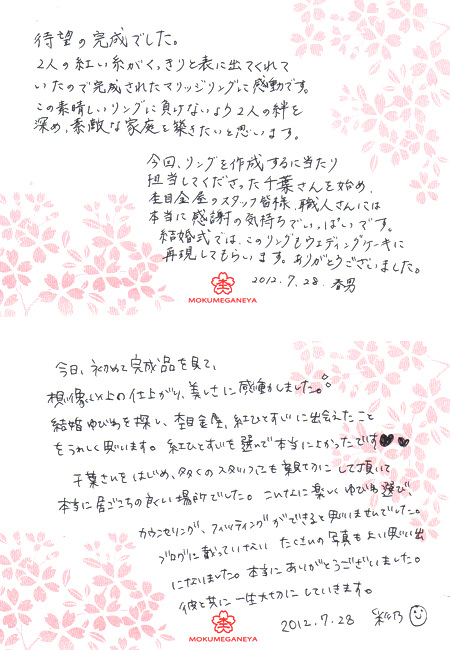 待望の完成でした。
2人の紅い糸がくっきりと表に出てくれて
いたので完成されたマリッジリングに感動です。
この素晴しいリングに負けないよう2人の絆を
深め、素敵な家庭を築きたいと思います。
今回、リングを作成するに当たり
担当してくださった千葉さんを始め、
杢目金屋のスタッフ皆様、職人さんには
本当に感謝の気持ちでいっぱいです。
結婚式では、このリングをウェディングケーキに
再現してもらいます。ありがとうございました。
2012.7.28 春男
MOKUMEGANEYA
今日、初めて完成品を見て、
想像以上の仕上がり、美しさに感動しました。
結婚ゆびわを探し、杢目金屋、紅ひとすじに出会えたこと
をうれしく思います。紅ひとすじを選んで本当によかったです
千葉さんをはじめ、多くのスタッフにも親切にして頂いて
本当に居ごこちの良い場所でした。こんなに楽しくゆびわ選び、
カウンセリング、フィッティングができると思いませんでした。
ブログに載っていない たくさんの写真も よい思い出
になりました。本当にありがとうございました。
彼と共に一生大切にしていきます。
2012.7.28
MOKUMEGANEYA